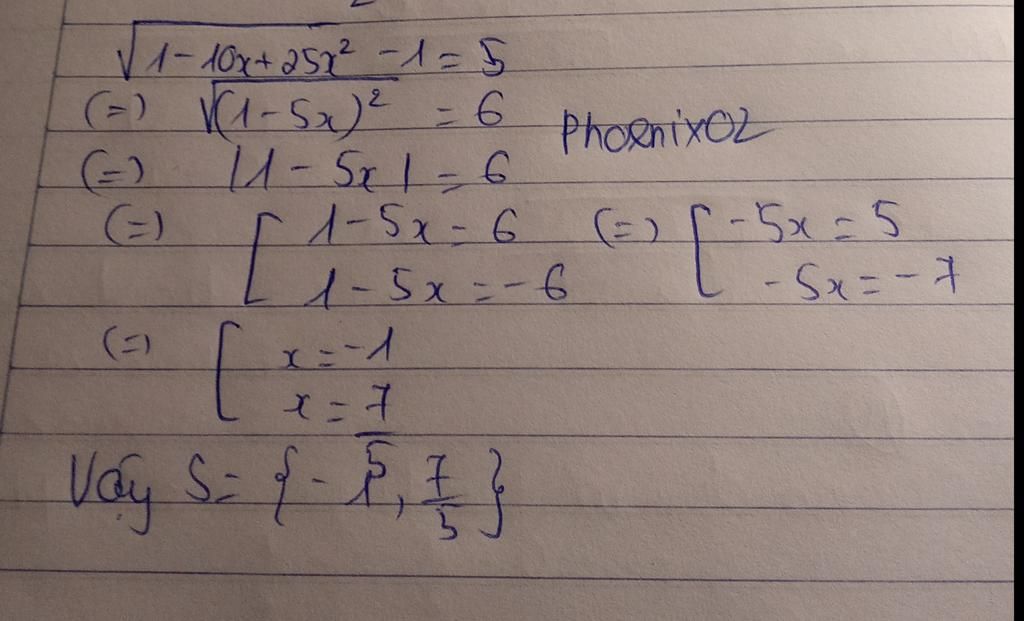 √1-10x+25x² -1 = 5
(=) √(1-5x)² = 6
Phoenix02
(=) |1-5x| = 6
(=) [ 1-5x = 6 (=) [ -5x = 5
1-5x = -6 -5x = -7
(=) [ x = -1
x = 7/5
Vậy S = {-1, 7/5}